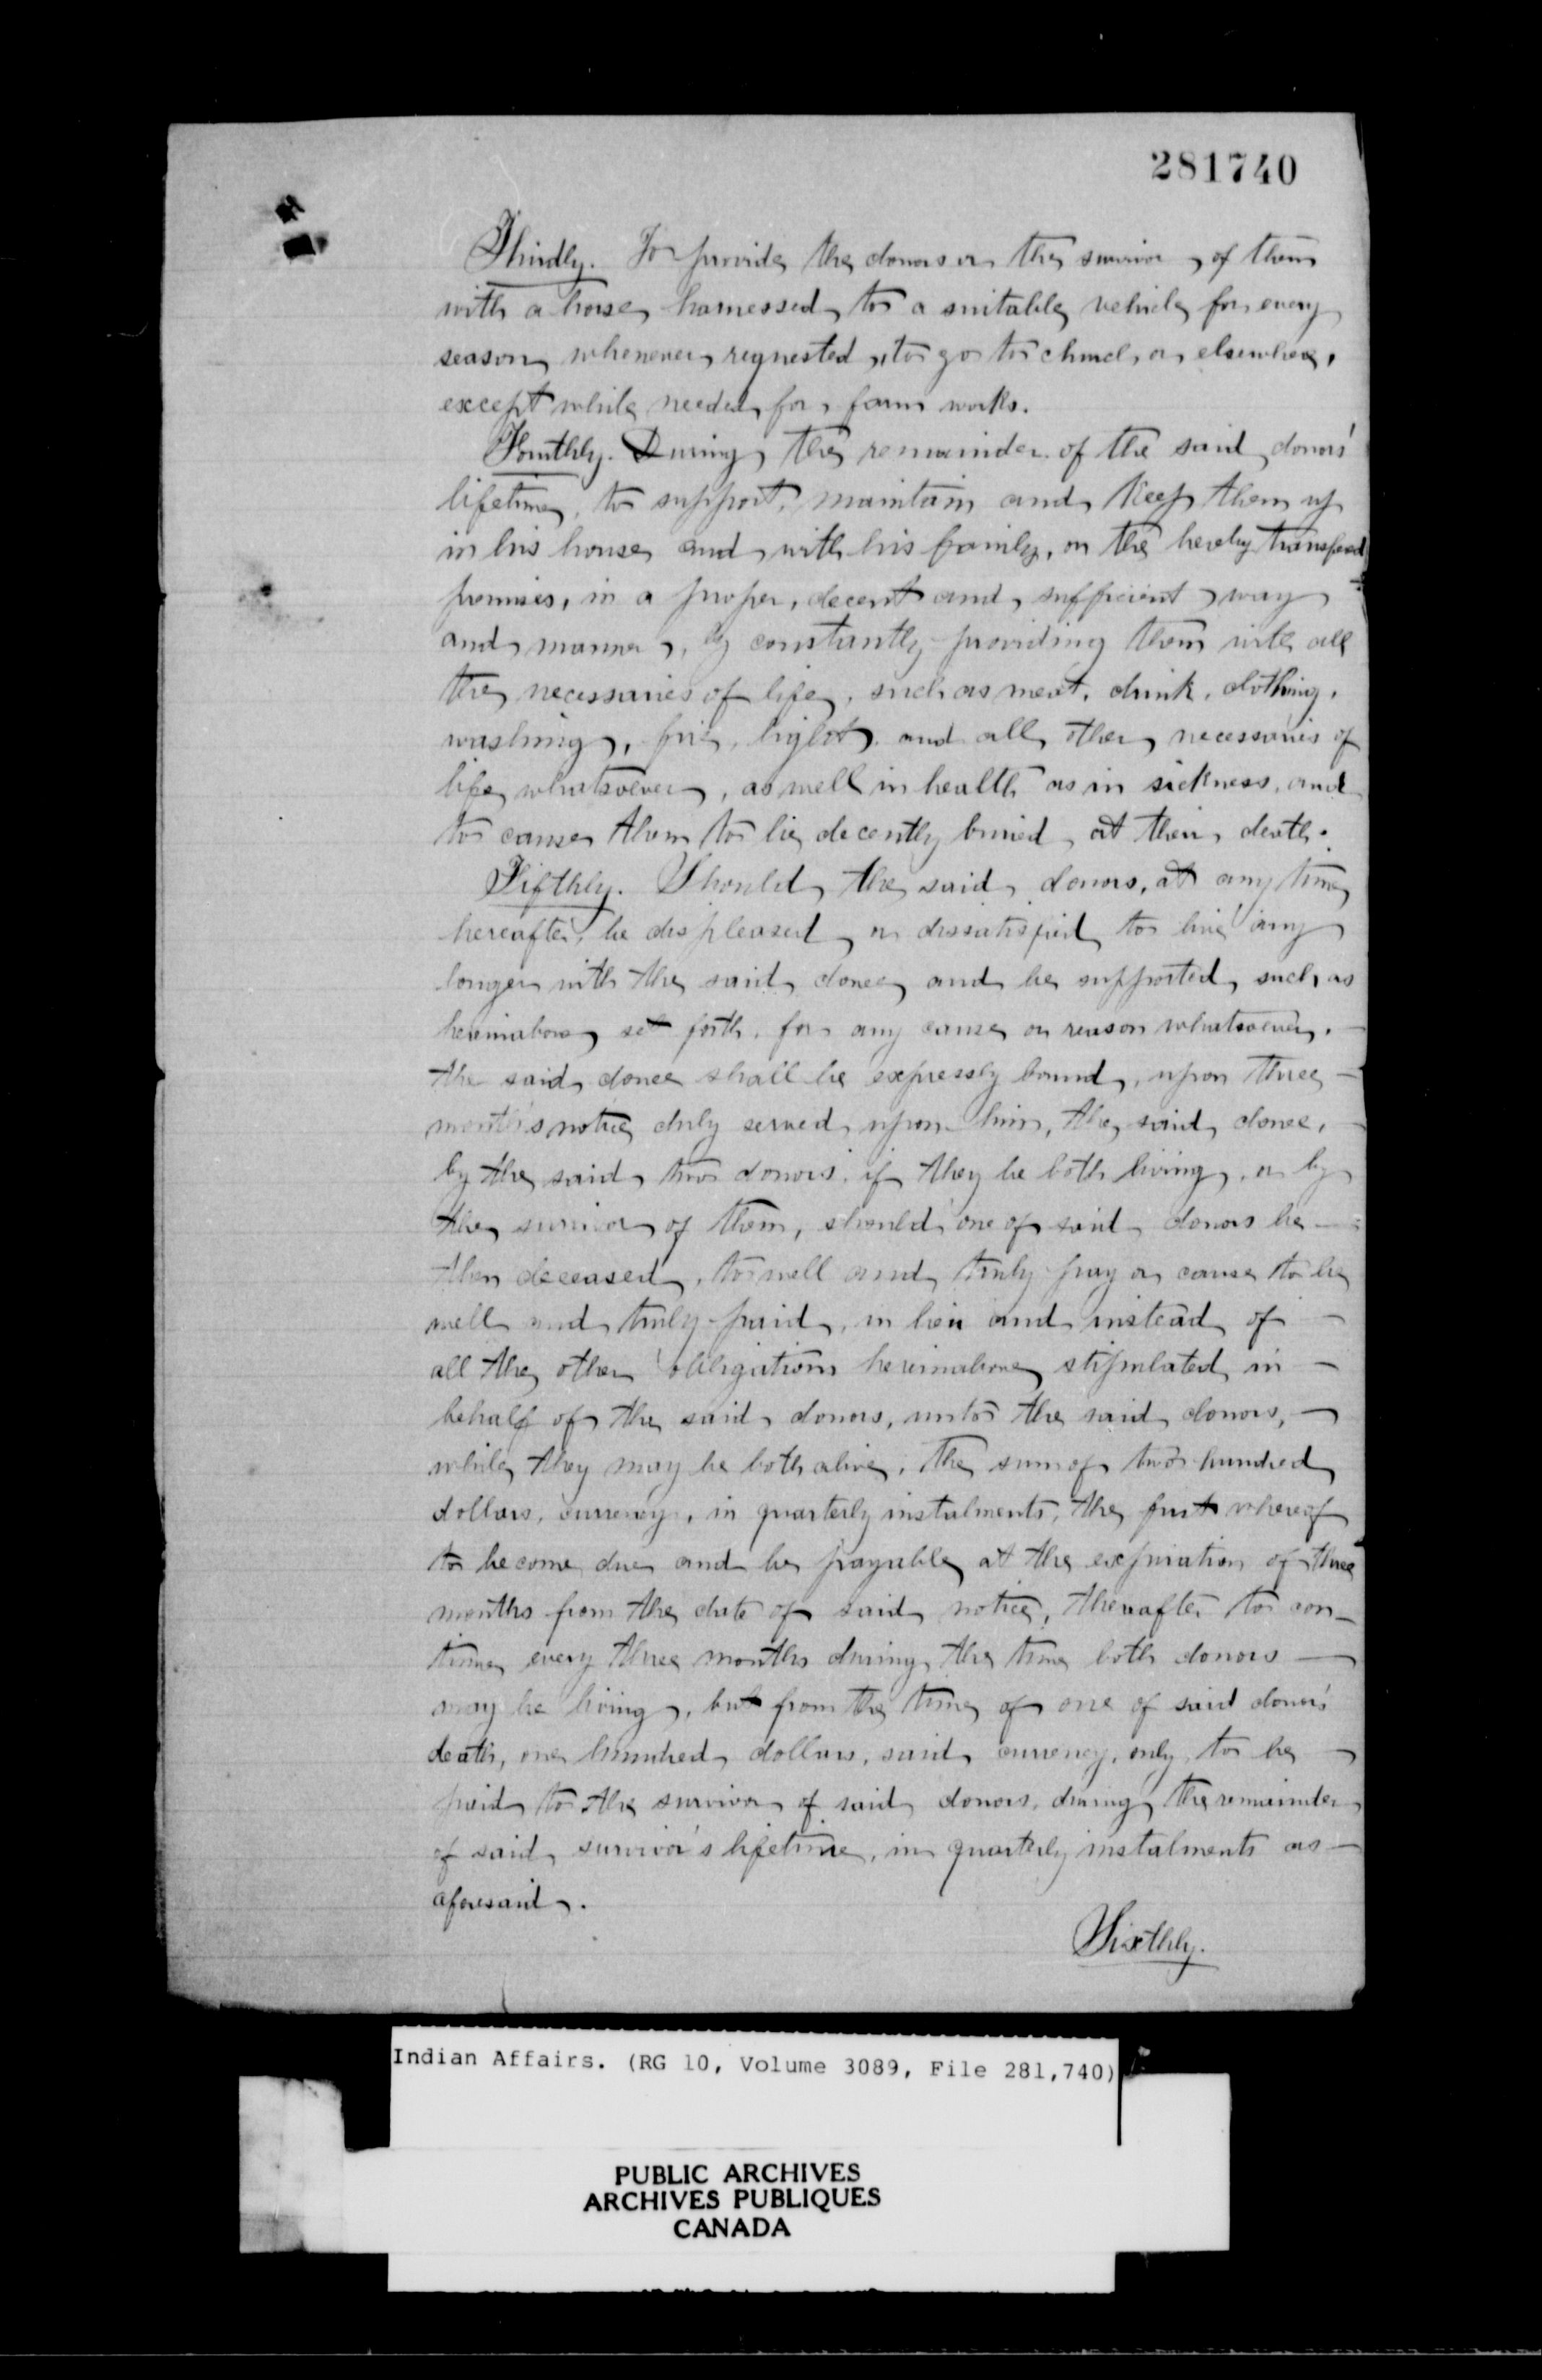 281740
Thirdly. To provide the donors or the survivor of them
with a horse harnessed to a suitable vehicle for every
season, whenever requested, to go to church or elsewhere,
except while needed for farm works.
Fourthly. During the remainder of the said donors'
lifetime, to support, maintain and keep them up
in his house and with his family, on the hereby transferred
premises, in a proper, decent and sufficient way
and manner, by constantly providing them with all
the necessaries of life, such as meat, drink, clothing,
washing, fire, light, and all other necessaries of
life whatsoever, as well in health as in sickness, and
to cause them to be decently buried at their death.
Fifthly. Should the said donors, at any time
hereafter, be displeased or dissatisfied to live any
longer with the said donee, and be supported, such as
hereinabove set forth, for any cause or reason whatsoever,
the said donee shall be expressly bound, upon three
month's notice duly served upon him, the said donee,
by the said two donors, if they be both living, or by
the survivor of them, should one of said donors be
then deceased, to well and truly pay or cause to be
well and truly paid, in lieu and instead of
all the other obligations hereinabove stipulated in
behalf of the said donors, unto the said donors,
while they may be both alive, the sum of two hundred
dollars, currency, in quarterly instalments, the first whereof
to become due and be payable at the expiration of three
months from the date of said notice, thereafter to con-
tinue every three months during the time both donors
may be living, but from the time of one of said donors'
death, one hundred dollars, said currency, only to be
paid to the survivor of said donors, during the remainder
of said survivor's lifetime, in quarterly instalments as
aforesaid.
Sixthly.
Indian Affairs. (RG 10, Volume 3089, File 281,740)
PUBLIC ARCHIVES
ARCHIVES PUBLIQUES
CANADA